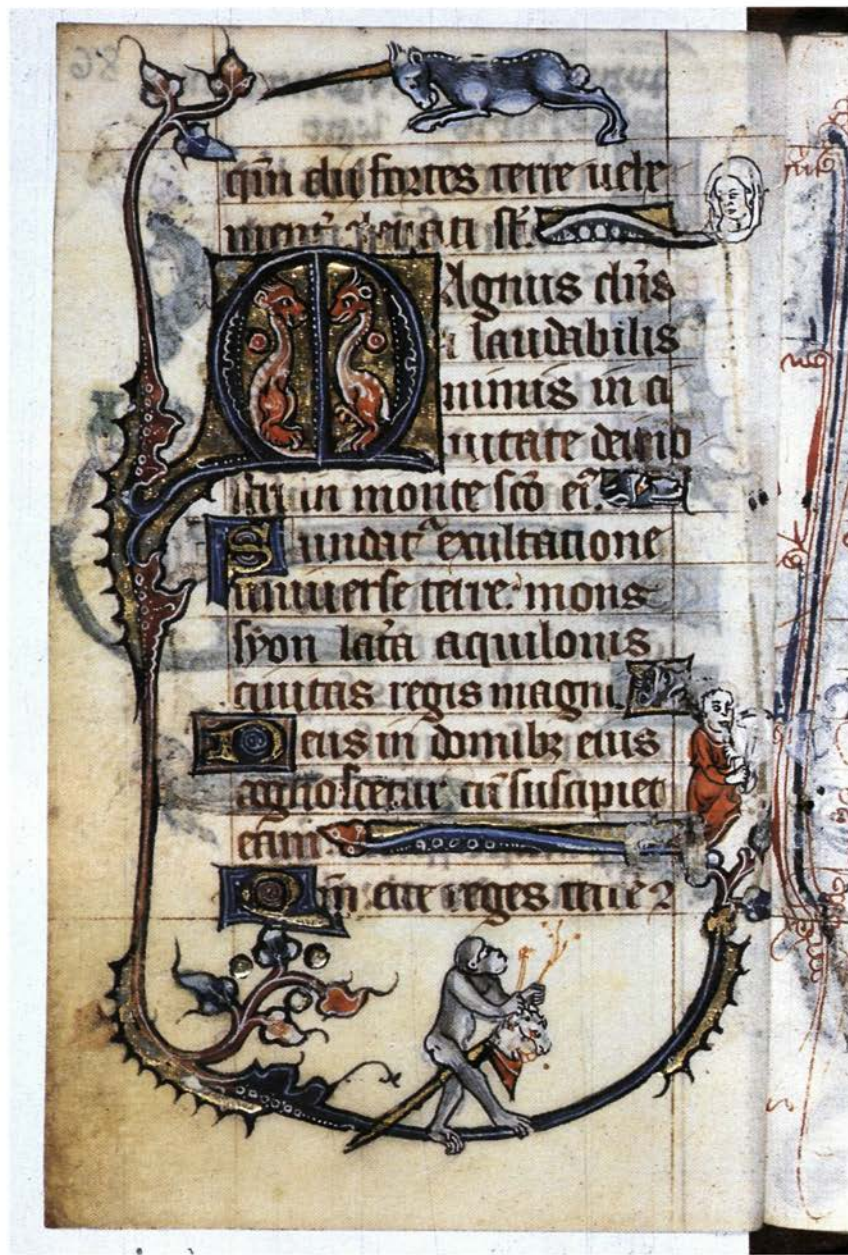 qm̄ dii fortes terre uehe
ment̄ eleuati st̄.
MAgnus dn̄s
laudabilis
nimis in ci
uitate dei nr̄i
in monte sc̄o ei᷒.
Fundat᷑ exultatione
uniuerse terre mons
syon lat̄a aquilonis
ciuitas regis magni.
Deus in domibꝫ eius
cognoscetur cū suscipiet
eam.
Qm̄ ecce reges terre ⁊